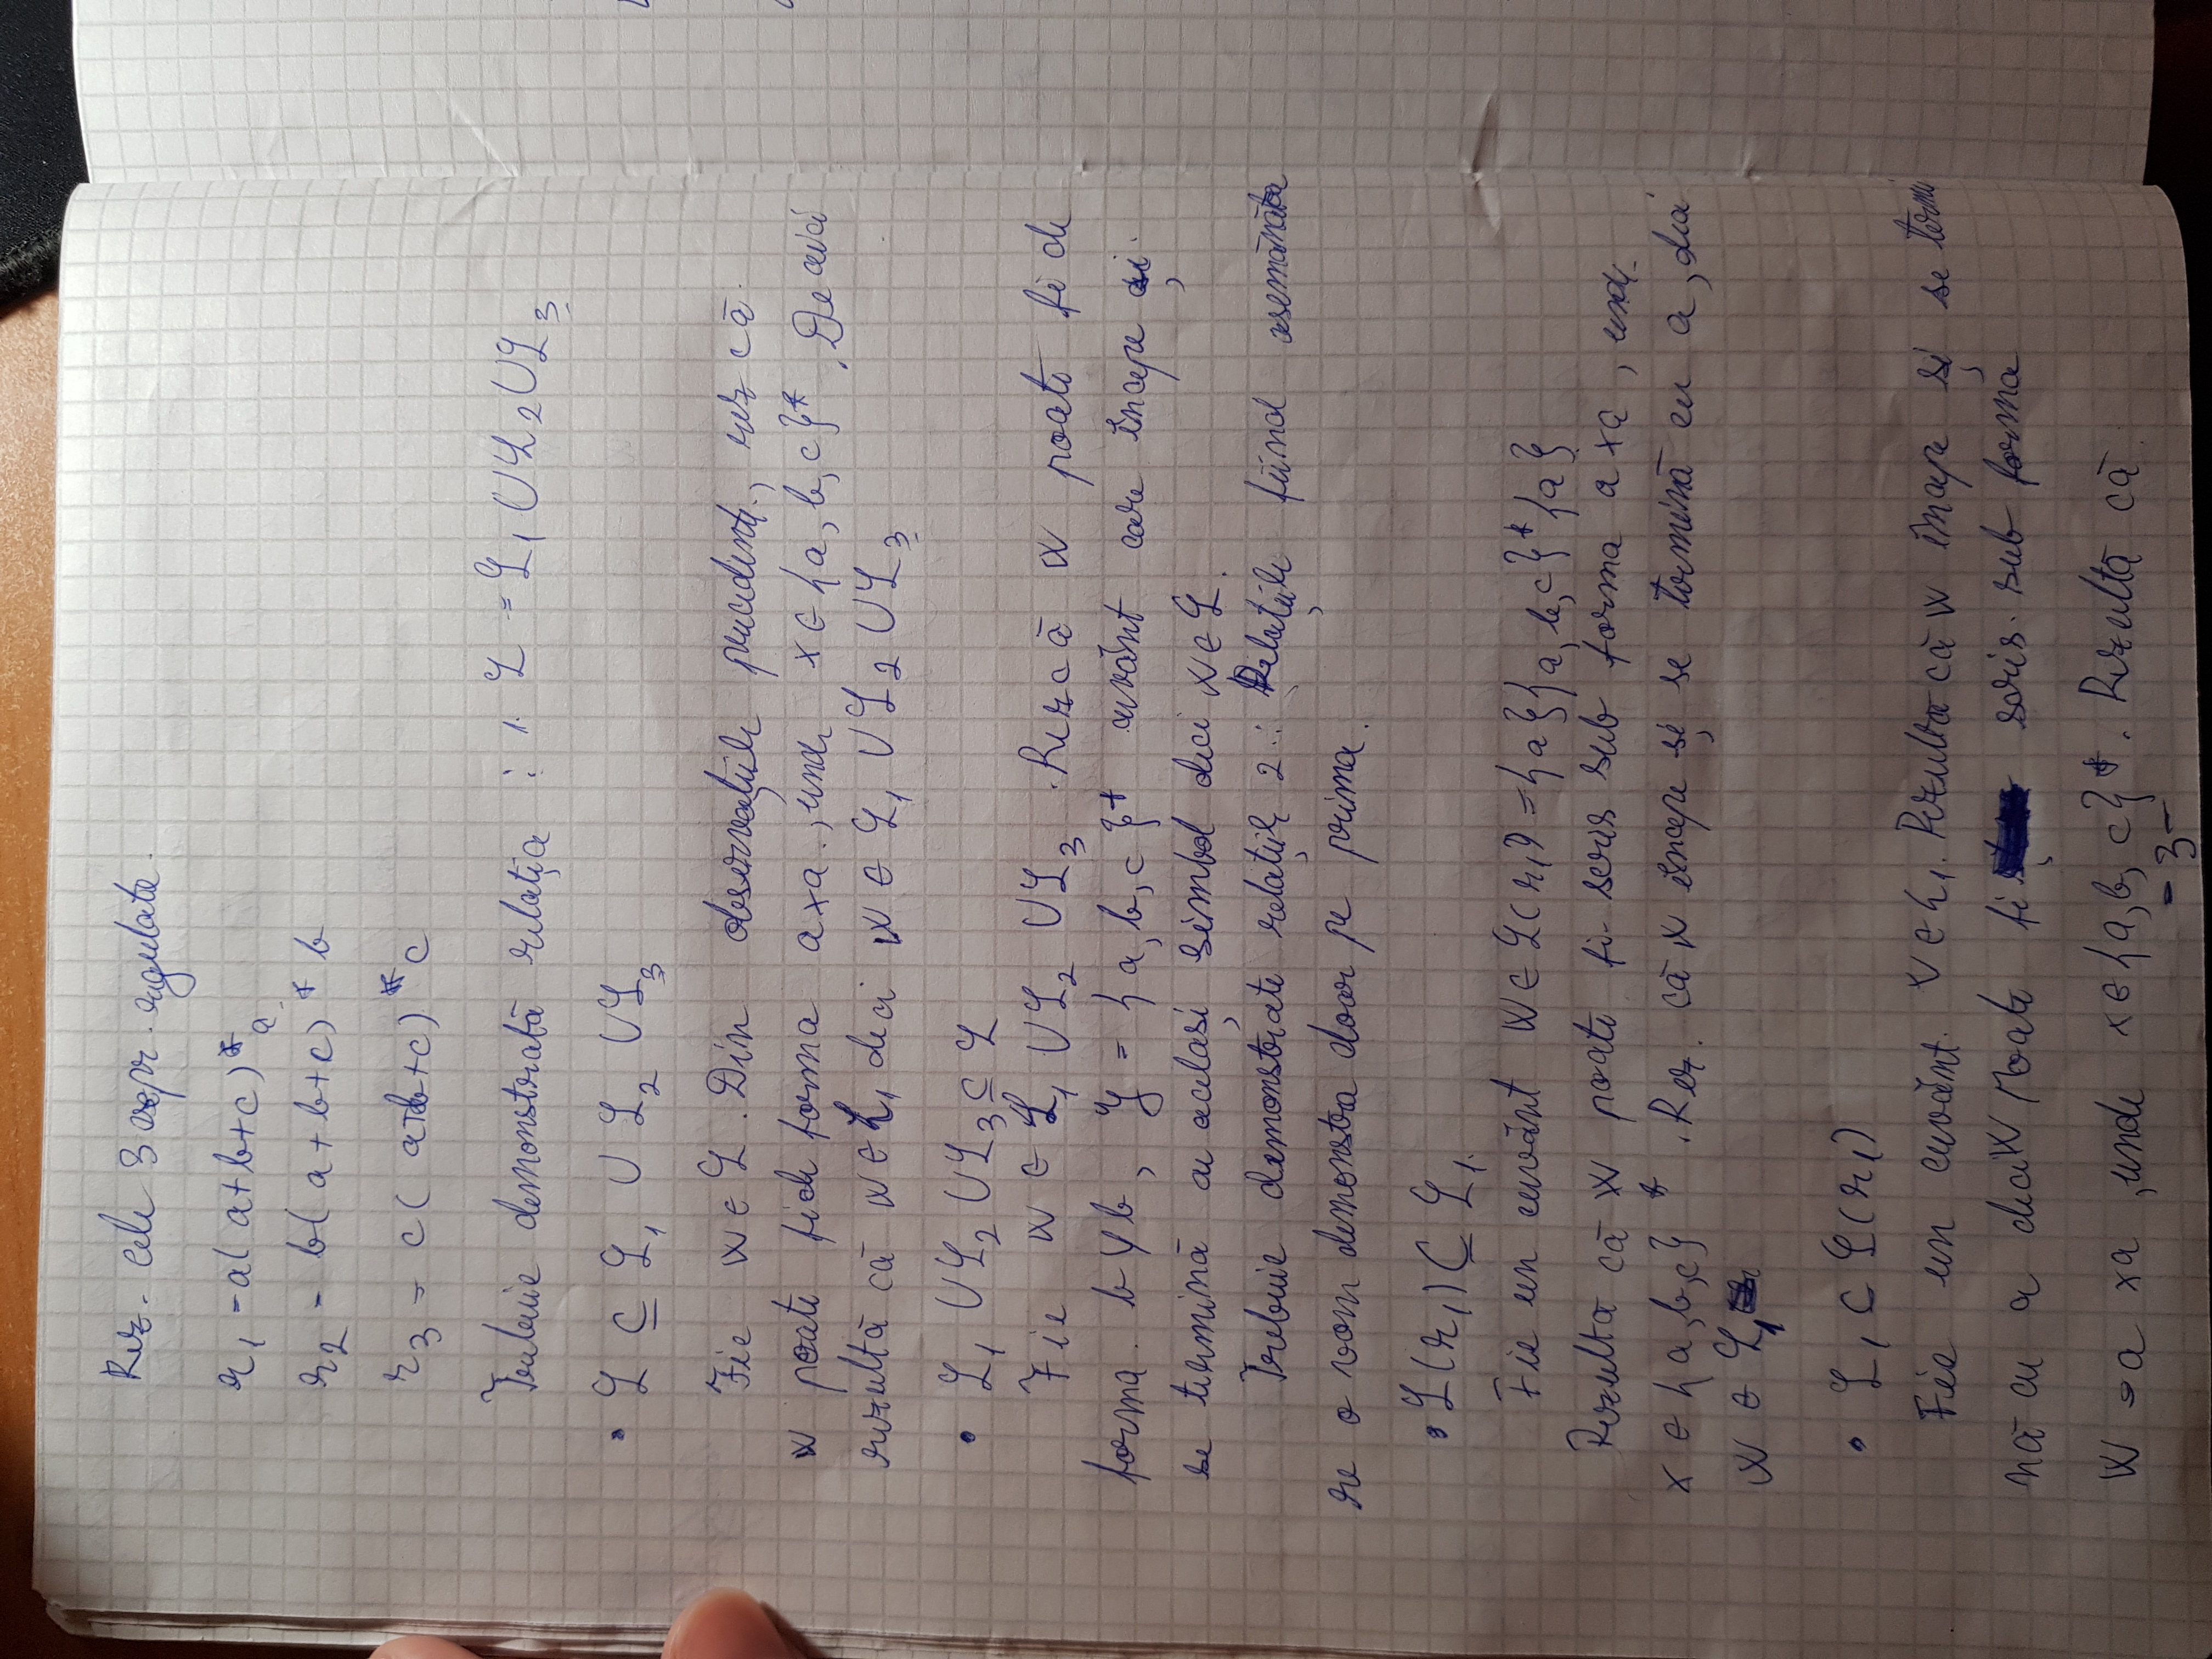 Rez. cele 3 expr. regulate.
r₁ = a(a+b+c)*a
r₂ = b(a+b+c)*b
r₃ = c(a+b+c)*c
Trebuie demonstrată relația : 1. L = L₁ ∪ L₂ ∪ L₃
• L ⊆ L₁ ∪ L₂ ∪ L₃
Fie w ∈ L. Din observațiile precedente, rez că
w poate fi de forma axa, unde x ∈ {a, b, c}*. De aici
rezultă că w ∈ L₁ deci w ∈ L₁ ∪ L₂ ∪ L₃
• L₁ ∪ L₂ ∪ L₃ ⊆ L
Fie w ∈ L₁ ∪ L₂ ∪ L₃. Rez că w poate fi de
forma byb, y = {a, b, c}* cuvânt care începe și
se termină cu același simbol deci w ∈ L.
Trebuie demonstrate relațiile 2: Relațiile fiind asemănătoa
re o vom demonstra doar pe prima.
• L(r₁) ⊆ L₁.
Fie un cuvânt w ∈ L(r₁) = {a}{a, b, c}*{a}
Rezultă că w poate fi scris sub forma axa, unde
x ∈ {a, b, c}*. Rez. că w începe și se termină cu a, deci
w ∈ L₁
• L₁ ⊂ L(r₁)
Fie un cuvânt w ∈ L₁. Rezultă că w începe și se termi
nă cu a deci w poate fi scris sub forma
w = a xa, unde x ∈ {a, b, c}*. Rezultă că
-3-